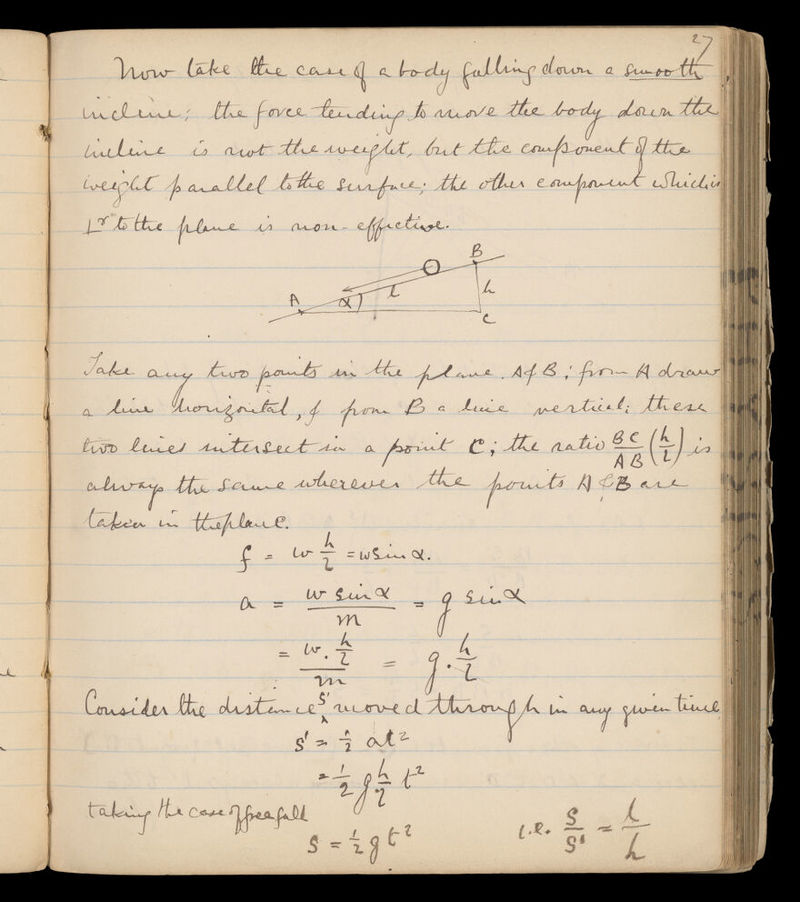 27
Now take the case of a body falling down a smooth
incline; the force tending to move the body down the
incline is not the weight, but the component of the
weight parallel to the surface; the other component which is
⊥r to the plane is non-effective.
B
A α l h
C
Take any two points in the plane. A & B; from A draw
a line horizontal, & from B a line vertical; these
two lines intersect in a point C; the ratio BC/AB (h/l) is
always the same wherever the points A & B are
taken in the plane.
f = w h/l = w sin α.
a = w sin α / m = g sin α
= w . h/l / m = g . h/l
Consider the distance s' moved through in any given time
s' = 1/2 at²
= 1/2 g h/l t²
taking the case of free fall
s = 1/2 g t² i.e. s/s' = l/h